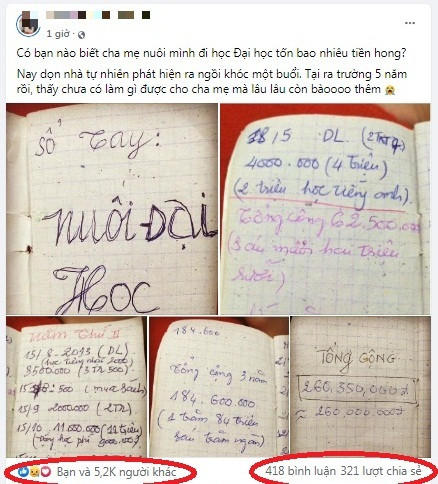 1 giờ ·
Có bạn nào biết cha mẹ nuôi mình đi học Đại học tốn bao nhiêu tiền hong?
Nay dọn nhà tự nhiên phát hiện ra ngồi khóc một buổi. Tại ra trường 5 năm
rồi, thấy chưa có làm gì được cho cha mẹ mà lâu lâu còn bàoooo thêm 😭
Sổ Tay:
NUÔI ĐẠI
HỌC
18/5 DL (2TR)
4000.000 (4 triệu)
(2 triệu học tiếng anh)
Tổng cộng 62.500.000
(Sáu mươi hai triệu
rưỡi)
Năm Thứ II
15/8-2013 (DL)
8500000
(mua sách)
15/9 2000000 (2TR)
15/10 11.000.000 (11 triệu)
184.600
Tổng cộng 3 năm
184.600.000
(1 trăm 84 triệu
sáu trăm ngàn)
TỔNG CỘNG
260.350,000đ
≈ 260.000.000đ
Bạn và 5,2K người khác
418 bình luận 321 lượt chia sẻ